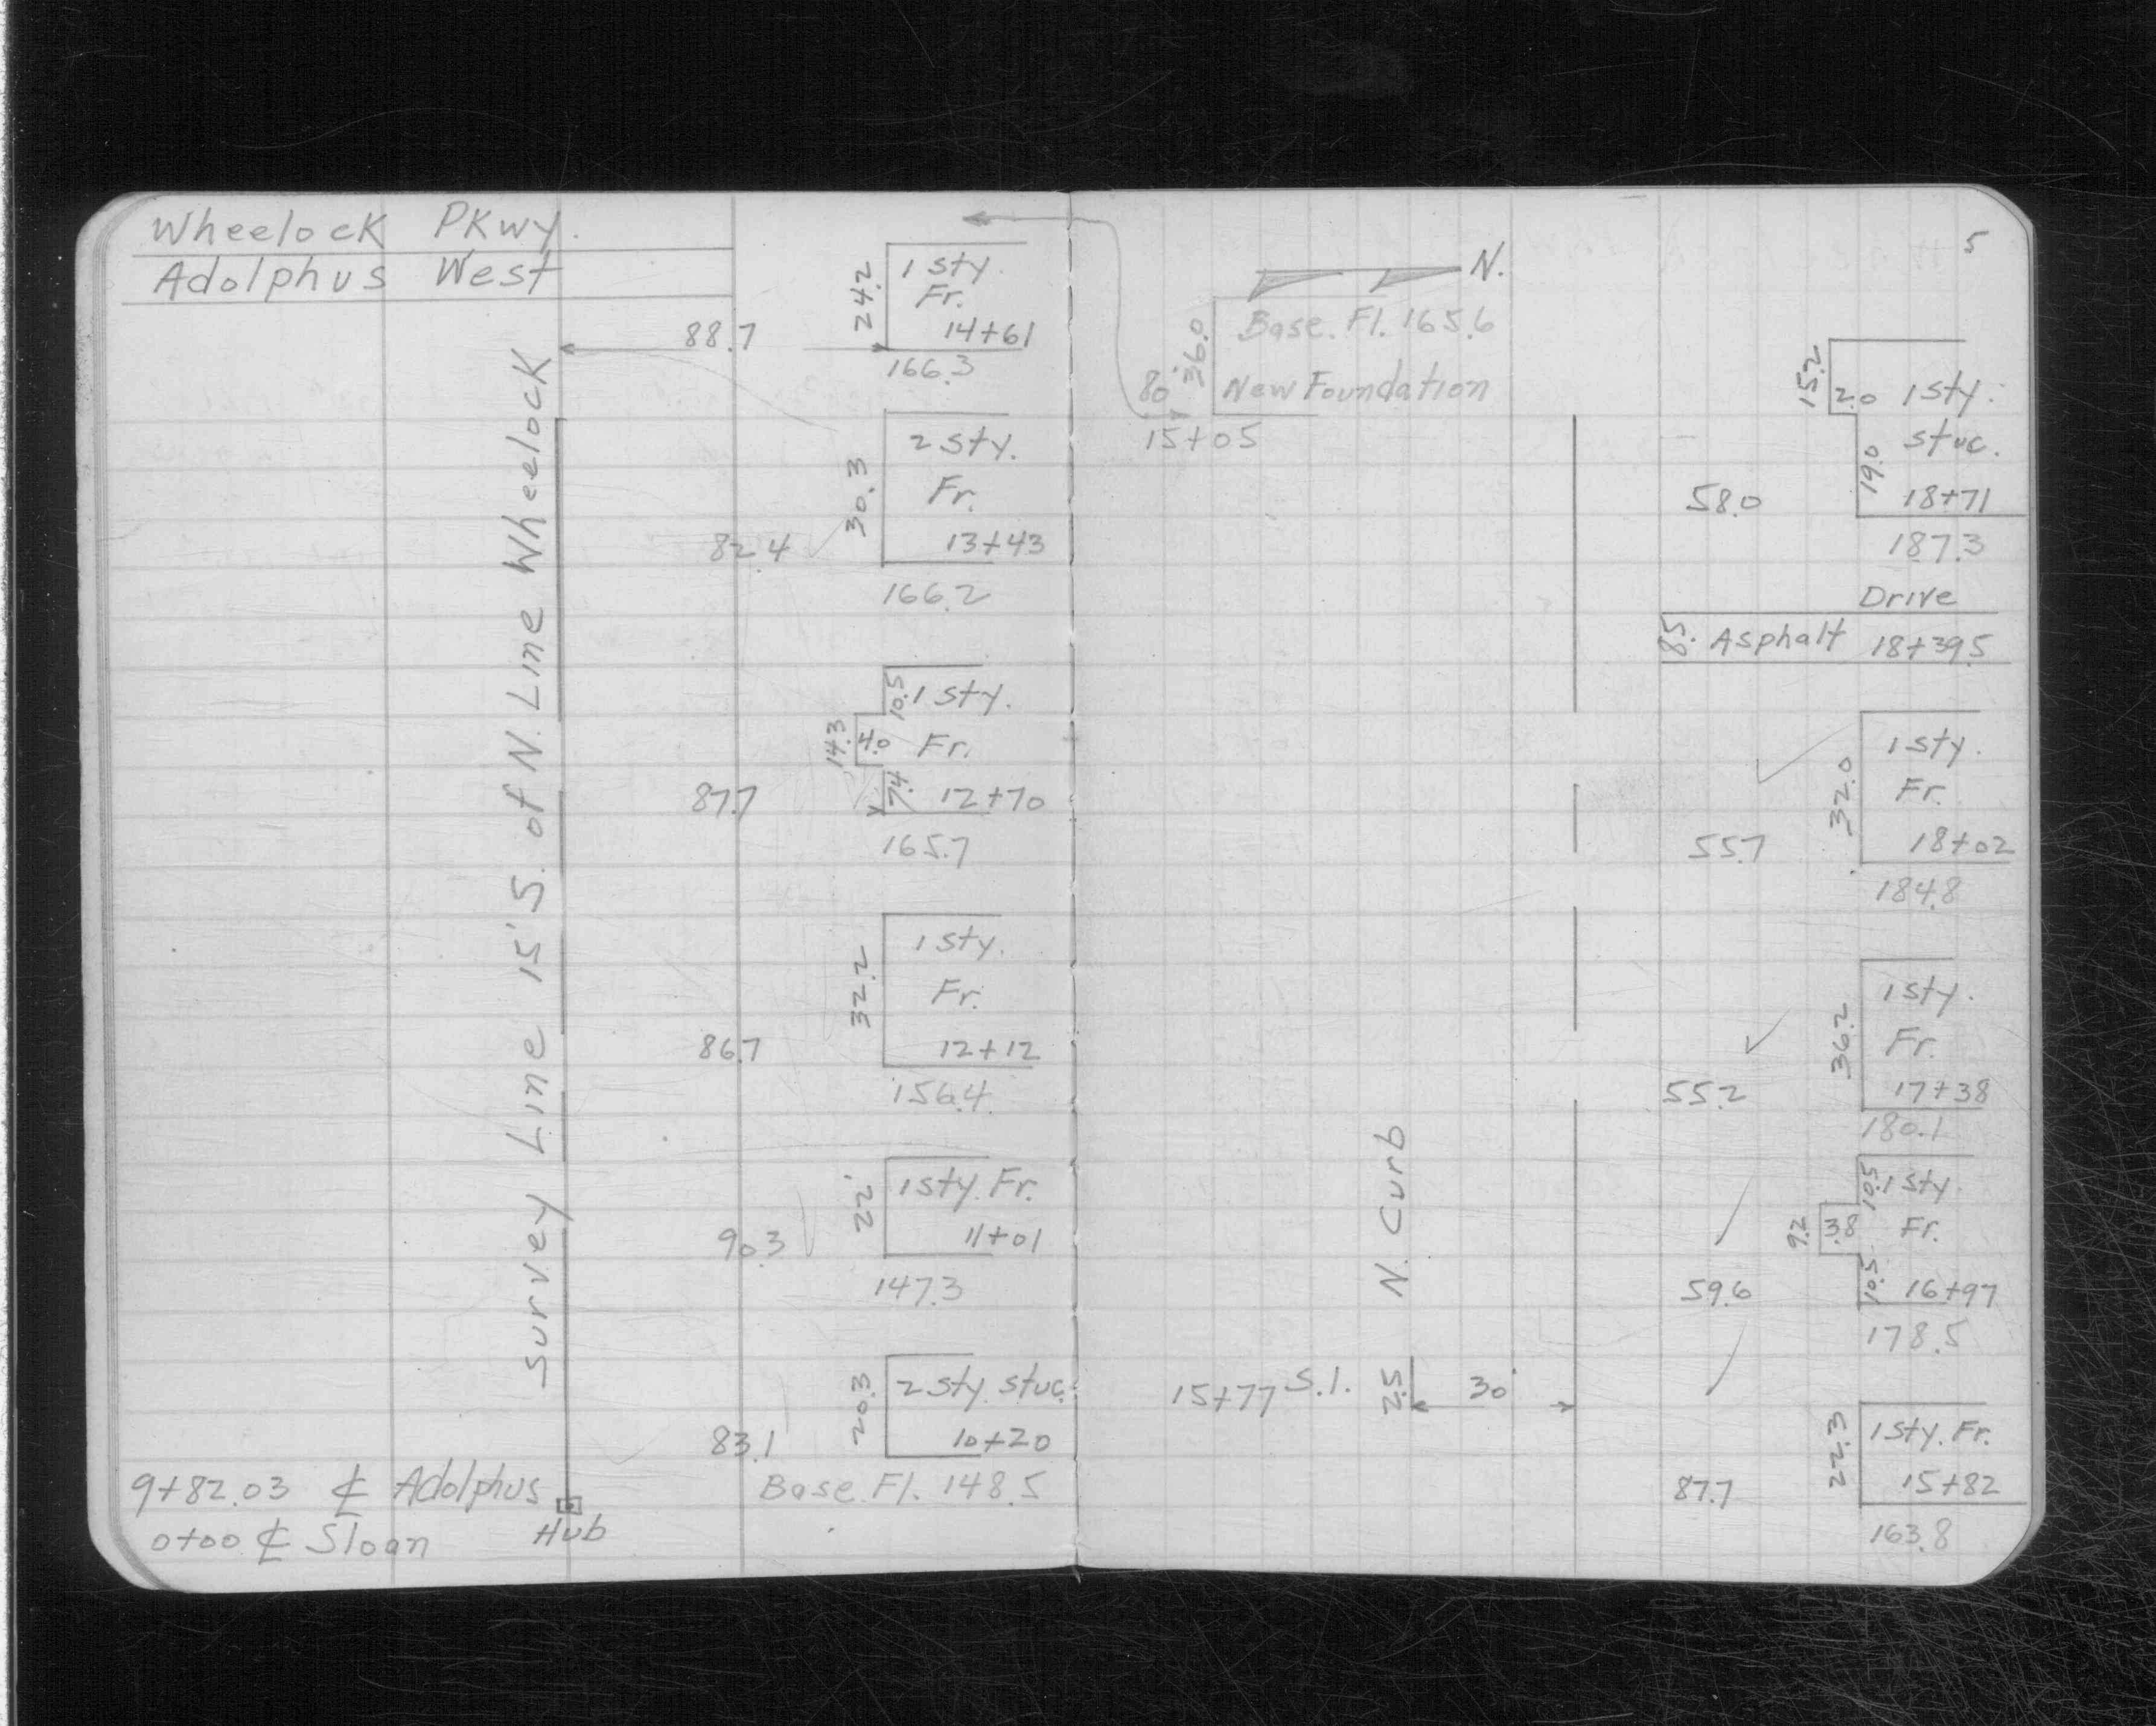 Wheelock PKwy.
Adolphus West
Survey Line 15' S. of N. Line Wheelock
88.7
24.2
1 sty.
Fr.
14+61
166.3
82.4
30.3
2 sty.
Fr.
13+43
166.2
87.7
10.5
14.3
4.0
7.4
1 sty.
Fr.
12+70
165.7
86.7
32.2
1 sty.
Fr.
12+12
156.4
90.3
22'
1 sty. Fr.
11+01
147.3
83.1
20.3
2 sty. stuc.
10+20
Base Fl. 148.5
9+82.03 ℄ Adolphus
Hub
0+00 ℄ Sloan
5
N.
Base. Fl. 165.6
36.0
80'
New Foundation
15+05
15.2
2.0
1 sty.
stuc.
19.0
58.0
18+71
187.3
Drive
8.5. Asphalt 18+39.5
32.0
1 sty.
Fr.
55.7
18+02
184.8
36.2
1 sty.
Fr.
55.2
17+38
180.1
10.5
1 sty.
9.2
3.8
Fr.
10.5
59.6
16+97
178.5
N. Curb
15+77 S.I.
2.5
30'
22.3
1 sty. Fr.
87.7
15+82
163.8